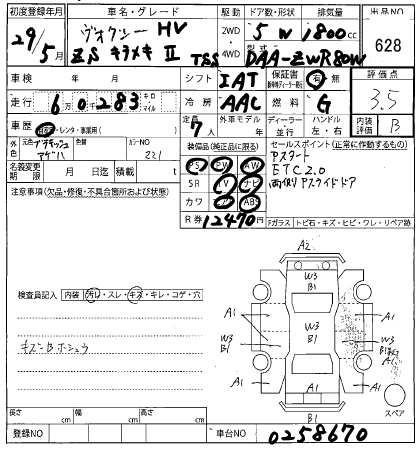 初度登録年月 車名・グレード 駆動 ドア数・形状 排気量 出品NO
29年 5月 ヴォクシー HV ZS キラメキ Ⅱ TSS 2WD・4WD 5 W 1800 cc
型式 DAA-ZWR80W 628
車検 年 月 シフト IAT 保証書 有 無 評価点
走行 6万0千283 キロ・マイル 冷房 AAC 燃料 G 3.5
車歴 自家・レンタ・事業用( ) 定員 7人 外車モデル 年 ディーラー・並行 ハンドル 左・右 内装評価 B
外装 元色 ブラキッシュアゲハ 色替 カラーNO 221 装備品(純正品に限る) セールスポイント(正常に動作するもの)
名義変更期限 月 日迄 積載 t PS PW AW Pスタート
注意事項(欠品・修復・不具合箇所および状態) SR TV ナビ ETC2.0
カワ ABS 両側Pスライドドア
R券 12470 円 Fガラス トビ石・キズ・ヒビ・ワレ・リペア跡
A2
W3
B1
検査員記入 内装 汚レ・スレ・キズ・キレ・コゲ・穴 A1 A1
W3 B1 W3 B1 W3
キズンBホシュウ
A1 A1
A1 スペア
B1
長さ cm 幅 cm 高さ cm
登録NO 車台NO 0258670